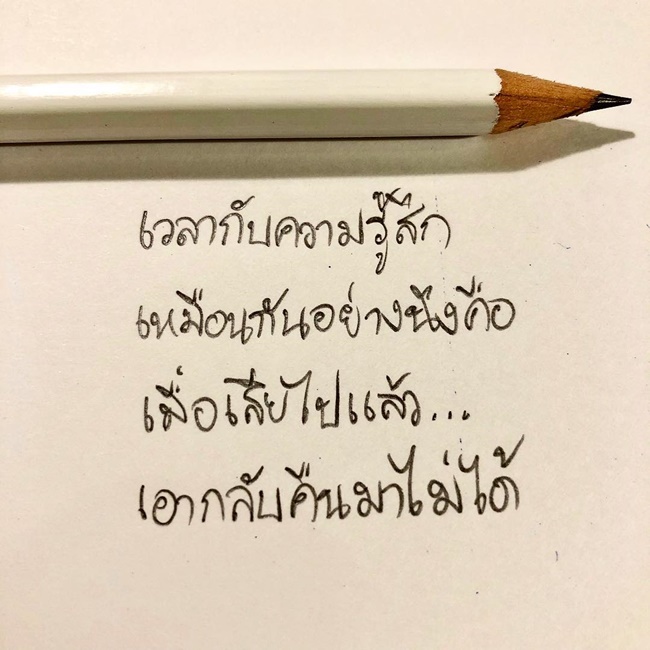 เวลากับความรู้สึก
เหมือนกันอย่างนึงคือ
เมื่อเสียไปแล้ว...
เอากลับคืนมาไม่ได้